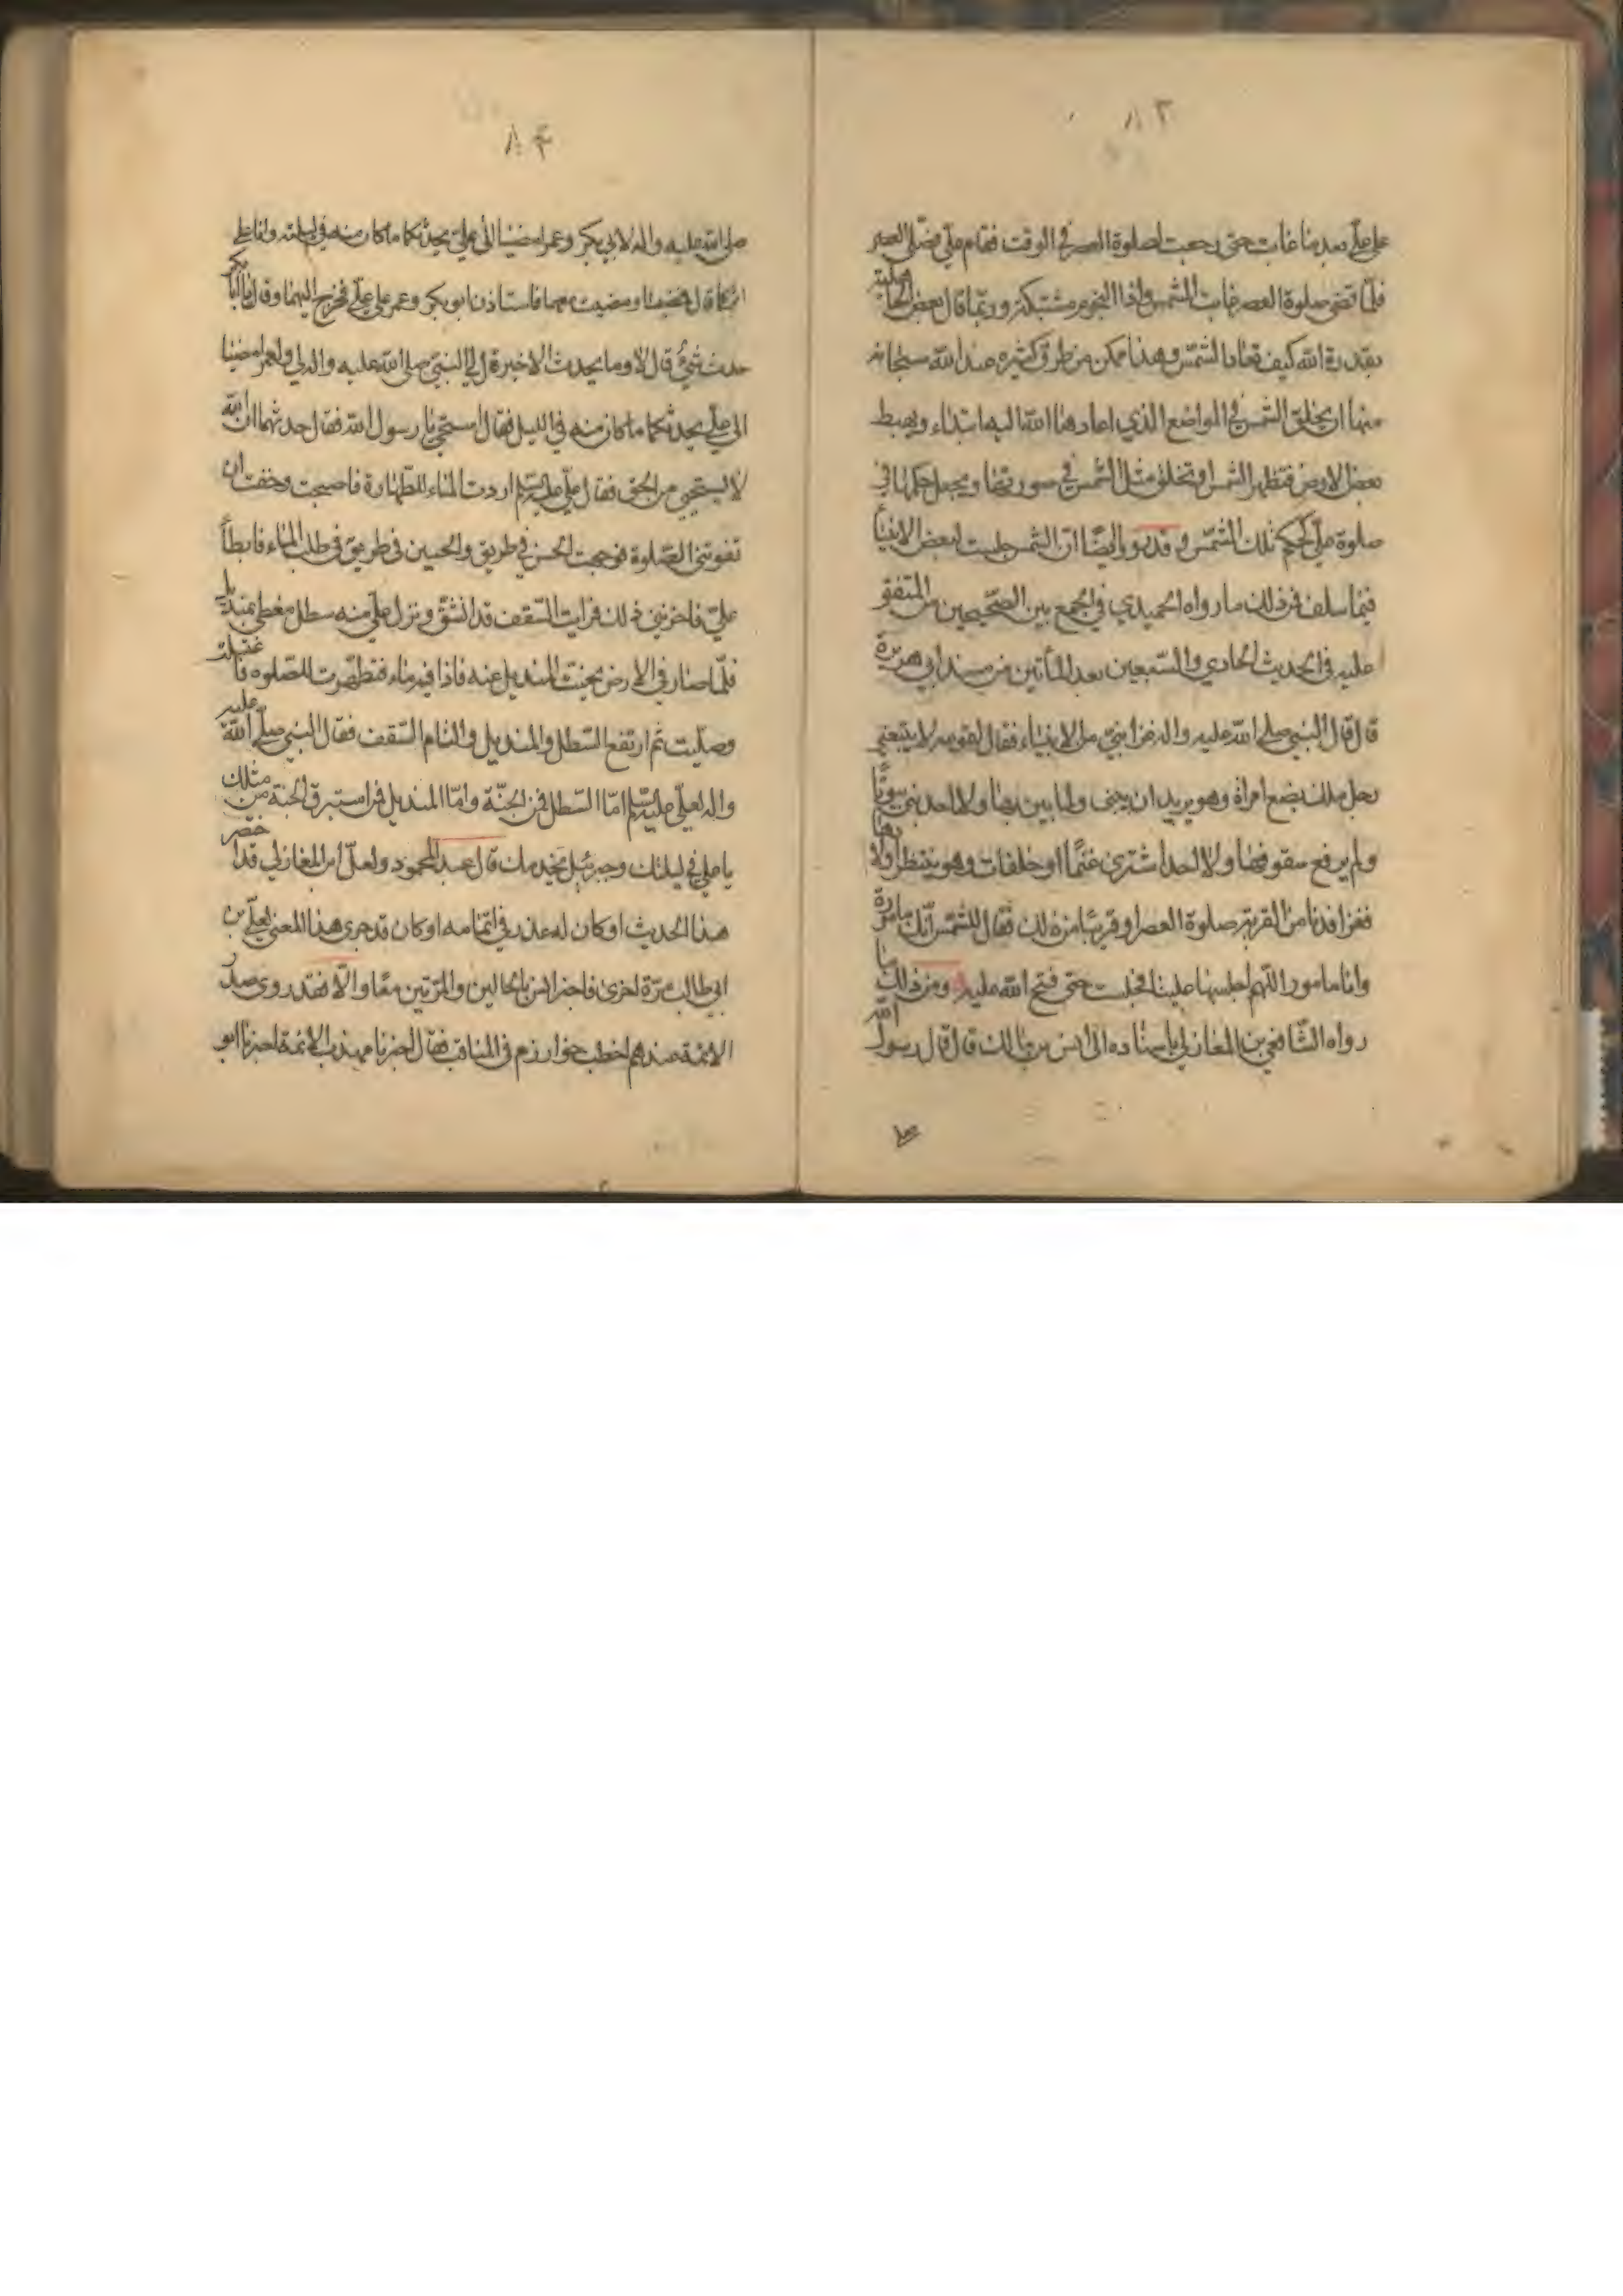 ٨٣
على علي بعد ما غابت حتى رجعت لصلوة العصر في الوقت فقام علي فصلى العصر
فلما قضى صلوة العصر غابت الشمس واذا النجوم مشتبكة وربما قال بعض الجاهلية
بقدرة الله كيف تعاد الشمس وهذا ممكن من طرق كثيرة عند الله سبحانه
منها ان يخلق الشمس في المواضع الذي اعادها الله اليها ابتداء ويهبط
بعض الارض فتظهر الشمس او تخلق مثل الشمس في صورتها ويجعل حكمها في
صلوة علي كحكم تلك الشمس وقد رووا ايضًا ان الشمس حبست لبعض الانبيآ
فيما سلف فمن ذلك ما رواه الحميدي في الجمع بين الصحيحين من المتفق
عليه في الحديث الحادي والسبعين بعد المأتين من مسند ابي هريرة
قال قال النبي صلى الله عليه واله غزا نبي من الانبياء فقال لقومه لا يتبعني
رجل ملك بضع امراة وهو يريد ان يبني بها ولما يبن بها ولا احد بنى بيوتًا
ولم يرفع سقوفها ولا احد اشترى غنمًا او خلفات وهو ينتظر ولادها
فغزا فدنا من القرية صلوة العصر او قريبًا من ذلك فقال للشمس انك مامورة
وانا مامور اللهم احبسها علينا فحبست حتى فتح الله عليه ومن ذلك ما
رواه الشافعي بن المغازلي باسناده الى انس بن مالك قال قال رسول الله
صلى
٨٤
صلى الله عليه واله لابي بكر وعمر امضيا الى علي يحدثكما ما كان منه في ليلته وانا على
اثركما قال فمضيا ومضيت معهما فاستاذن ابو بكر وعمر على علي فخرج اليهما وقال يا ابا بكر
حدث شيءٌ قال لا وما يحدث الا خير قال لي النبي صلى الله عليه واله لي ولعمر امضيا
الى علي يحدثكما ما كان منه في الليل فقال استحي يا رسول الله فقال حدثهما ان الله
لا يستحي من الحق فقال علي عليه السلم اردت الماء للطهارة فاصبحت وخفت ان
تفوتني الصلوة فوجهت الحسن في طريق والحسين في طريق في طلب الماء فابطأ
علي فاحزنني ذلك فرايت السقف قد انشق ونزل علي منه سطل مغطى بمنديل
فلما صار في الارض نحيت المنديل عنه فاذا فيه ماء فتطهرت للصلوه فاغتسلت
وصليت ثم ارتفع السطل والمنديل والتام السقف فقال النبي صلى الله عليه
واله لعلي عليه السلم اما السطل فمن الجنة واما المنديل فمن استبرق الجنة من مثلك
يا علي في ليلتك وجبرئيل يخدمك قال عبد المحمود ولعل ابن المغازلي قد اختصر
هذا الحديث او كان له عذر في اتمامه او كان قد جرى هذا المعنى لعلي بن
ابي طالب مرة اخرى فاخبر انس بالحالين والمرتين معًا والا فقد روى صدر
الائمة عندهم اخطب خوارزم في المناقب فقال اخبرنا مهذب الائمة اخبرنا ابو